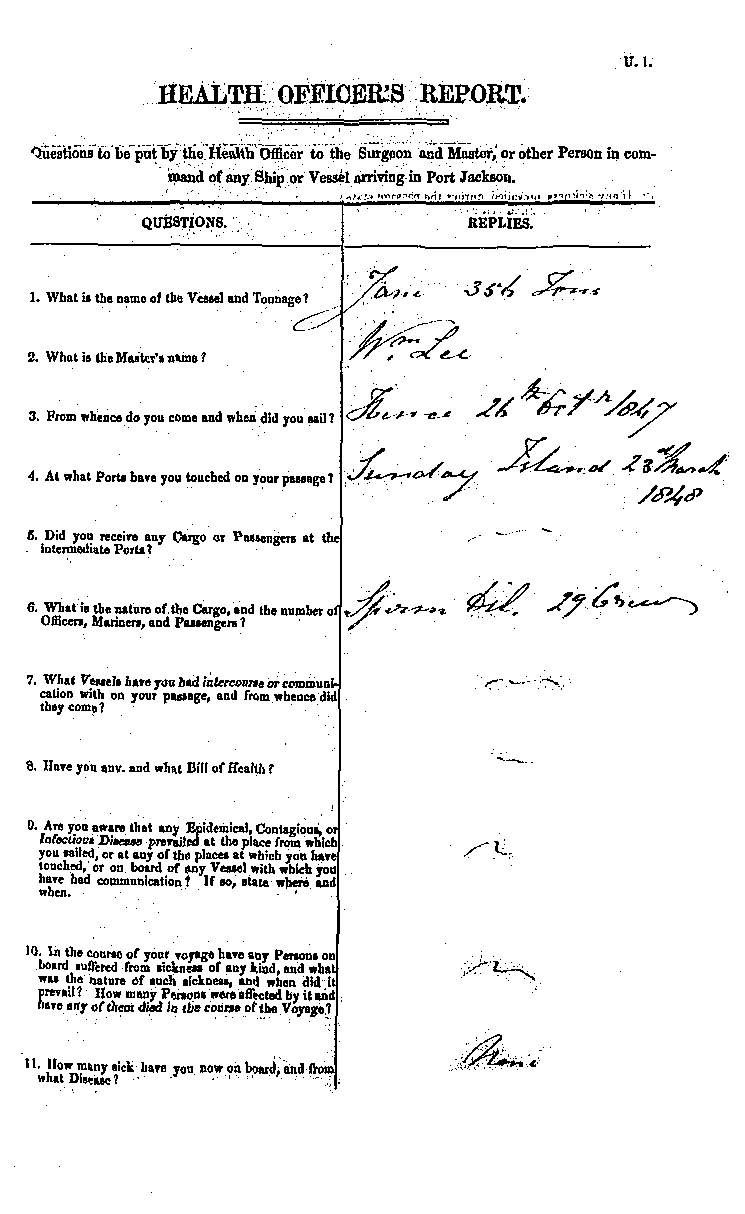 U. 1.
HEALTH OFFICER'S REPORT.
Questions to be put by the Health Officer to the Surgeon and Master, or other Person in com-
mand of any Ship or Vessel arriving in Port Jackson.
QUESTIONS.
REPLIES.
1. What is the name of the Vessel and Tonnage?
Jane 356 Tons
2. What is the Master's name?
Wm. Lee
3. From whence do you come and when did you sail?
Hence 26th Octr 1847
4. At what Ports have you touched on your passage?
Sunday Island 23d March
1848
5. Did you receive any Cargo or Passengers at the
intermediate Ports?
6. What is the nature of the Cargo, and the number of
Officers, Mariners, and Passengers?
Sperm Oil. 29 Crew
7. What Vessels have you had intercourse or communi-
cation with on your passage, and from whence did
they come?
8. Have you any. and what Bill of Health?
9. Are you aware that any Epidemical, Contagious, or
Infectious Disease prevailed at the place from which
you sailed, or at any of the places at which you have
touched, or on board of any Vessel with which you
have had communication? If so, state where and
when.
10. In the course of your voyage have any Persons on
board suffered from sickness of any kind, and what
was the nature of such sickness, and when did it
prevail? How many Persons were affected by it and
have any of them died in the course of the Voyage?
11. How many sick have you now on board, and from
what Disease?
None